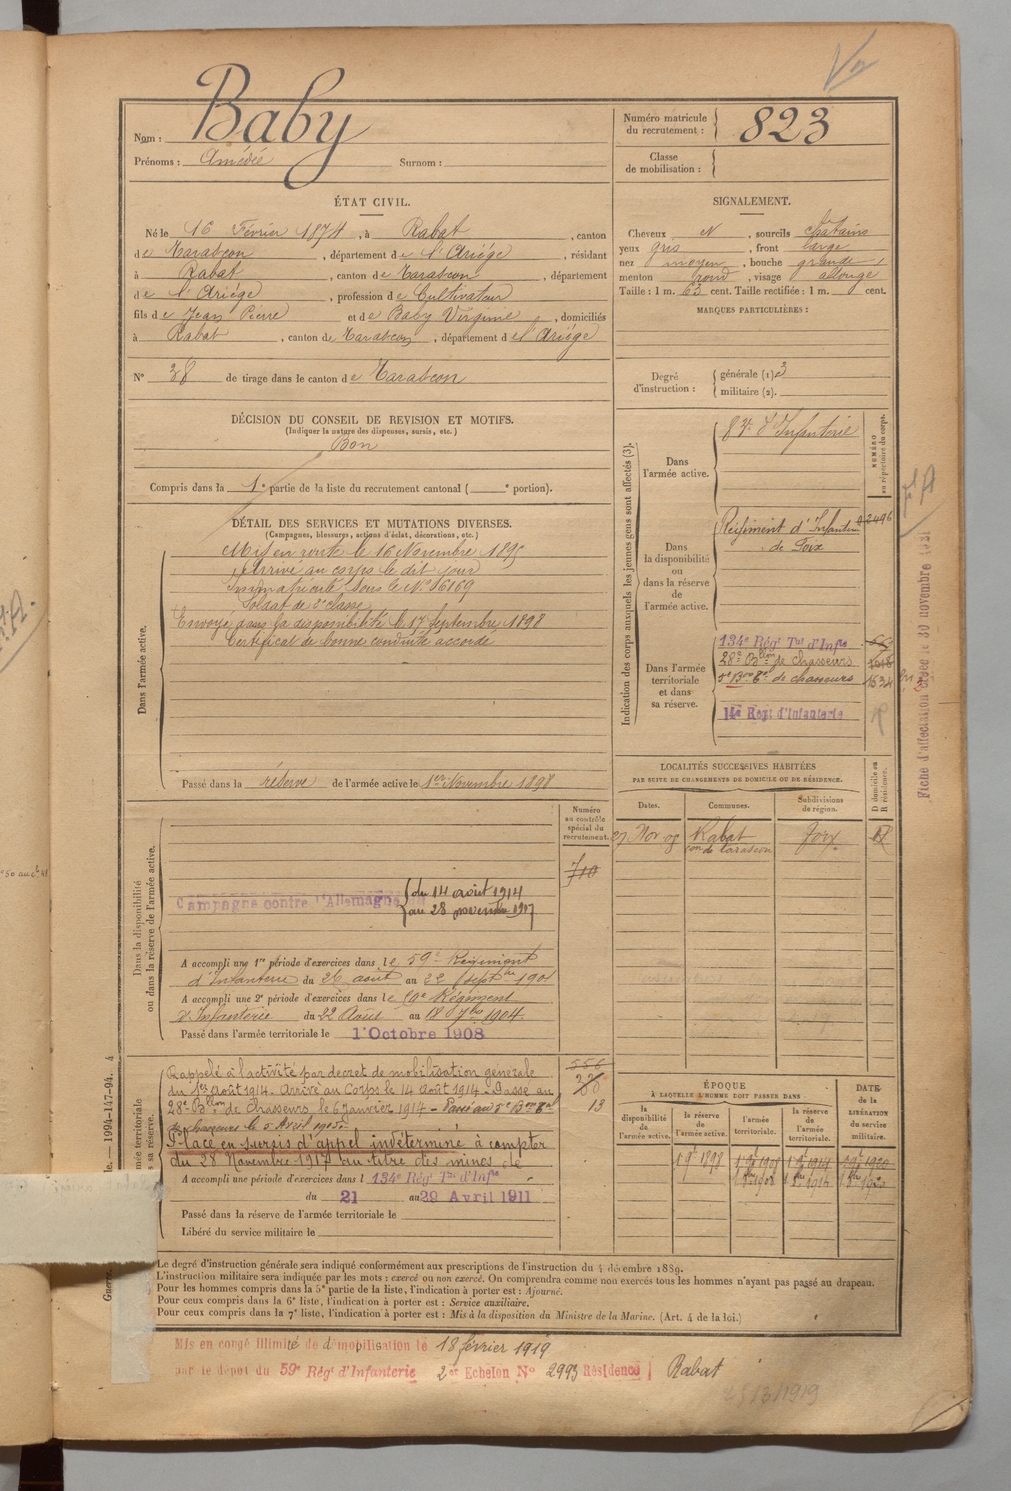 Nom : Baby
Prénoms : Amédée Surnom :
Numéro matricule du recrutement : 823
Classe de mobilisation :
ÉTAT CIVIL.
Né le 16 Février 1874, à Rabat, canton
de Tarascon, département de l'Ariége, résidant
à Rabat, canton de Tarascon, département
de l'Ariége, profession de Cultivateur
fils de Jean Pierre et de Baby Virginie, domiciliés
à Rabat, canton de Tarascon, département de l'Ariége
N° 38 de tirage dans le canton de Tarascon
SIGNALEMENT.
Cheveux N, sourcils chatains
yeux gris, front large
nez moyen, bouche grande
menton rond, visage allongé
Taille : 1 m. 63 cent. Taille rectifiée : 1 m. cent.
MARQUES PARTICULIÈRES :
Degré d'instruction : générale (1) 3
militaire (2).
DÉCISION DU CONSEIL DE REVISION ET MOTIFS.
(Indiquer la nature des dispenses, sursis, etc.)
Bon
Compris dans la 1e partie de la liste du recrutement cantonal ( e portion).
DÉTAIL DES SERVICES ET MUTATIONS DIVERSES.
(Campagnes, blessures, actions d'éclat, décorations, etc.)
Dans l'armée active.
Mis en route le 16 Novembre 1895
Arrivé au corps le dit jour
Immatriculé sous le N°
Soldat de 2e classe
Envoyé dans la disponibilité le 17 Septembre 1898
Certificat de bonne conduite accordé
Passé dans la réserve de l'armée active le 1er Novembre 1898
Indication des corps auxquels les jeunes gens sont affectés (3).
NUMÉRO au répertoire du corps.
Dans l'armée active.
d'Infanterie
Dans la disponibilité ou dans la réserve de l'armée active.
Régiment d'Infanterie 2496
de Foix
Dans l'armée territoriale et dans sa réserve.
134e Régt Tal d'Infie
28e Bllon de chasseurs 1018
de chasseurs 1534
14e Regt d'Infanterie
Fiche d'affectation créée le 30 novembre
LOCALITÉS SUCCESSIVES HABITÉES
PAR SUITE DE CHANGEMENTS DE DOMICILE OU DE RÉSIDENCE.
Dates. Communes. Subdivisions de région. D domicile ou R résidence.
27 Nov. 08 Rabat Foix
con de Tarascon
Dans la disponibilité ou dans la réserve de l'armée active.
Numéro au contrôle spécial du recrutement.
710
Campagne contre l'Allemagne du
du 14 août 1914
au 28 novembre 1917
A accompli une 1re période d'exercices dans le 59e Régiment
d'Infanterie du 26 août au 22 septbre 1901
A accompli une 2e période d'exercices dans le 59e Régiment
d'Infanterie du 22 Août au 18 7bre 1904
Passé dans l'armée territoriale le 1er Octobre 1908
Rappelé à l'activité par decret de mobilisation générale
du 1er Août 1914. Arrivé au Corps le 14 Août 1914 - Passé au
28e Bllon de Chasseurs, le 6 Janvier 1914 - Passé au
de chasseurs le 5 Avril
Placé en sursis d'appel indéterminé à compter
du 28 Novembre 1917 au titre des mines de
A accompli une période d'exercices dans l 134e Régt Tal d'Infie
du 21 au 29 Avril 1911
Passé dans la réserve de l'armée territoriale le
Libéré du service militaire le
556
13
ÉPOQUE
À LAQUELLE L'HOMME DOIT PASSER DANS
la disponibilité de l'armée active. la réserve de l'armée active. l'armée territoriale. la réserve de l'armée territoriale.
DATE de la LIBÉRATION du service militaire.
Le degré d'instruction générale sera indiqué conformément aux prescriptions de l'instruction du 4 décembre 1889.
L'instruction militaire sera indiquée par les mots : exercé ou non exercé. On comprendra comme non exercés tous les hommes n'ayant pas passé au drapeau.
Pour les hommes compris dans la 5e partie de la liste, l'indication à porter est : Ajourné.
Pour ceux compris dans la 6e liste, l'indication à porter est : Service auxiliaire.
Pour ceux compris dans la 7e liste, l'indication à porter est : Mis à la disposition du Ministre de la Marine. (Art. 4 de la loi.)
Mis en congé illimité de démobilisation le 18 février 1919
par le dépot du 59e Régt d'Infanterie 2e Echelon N° 2993 Résidence Rabat
1994-147-94.